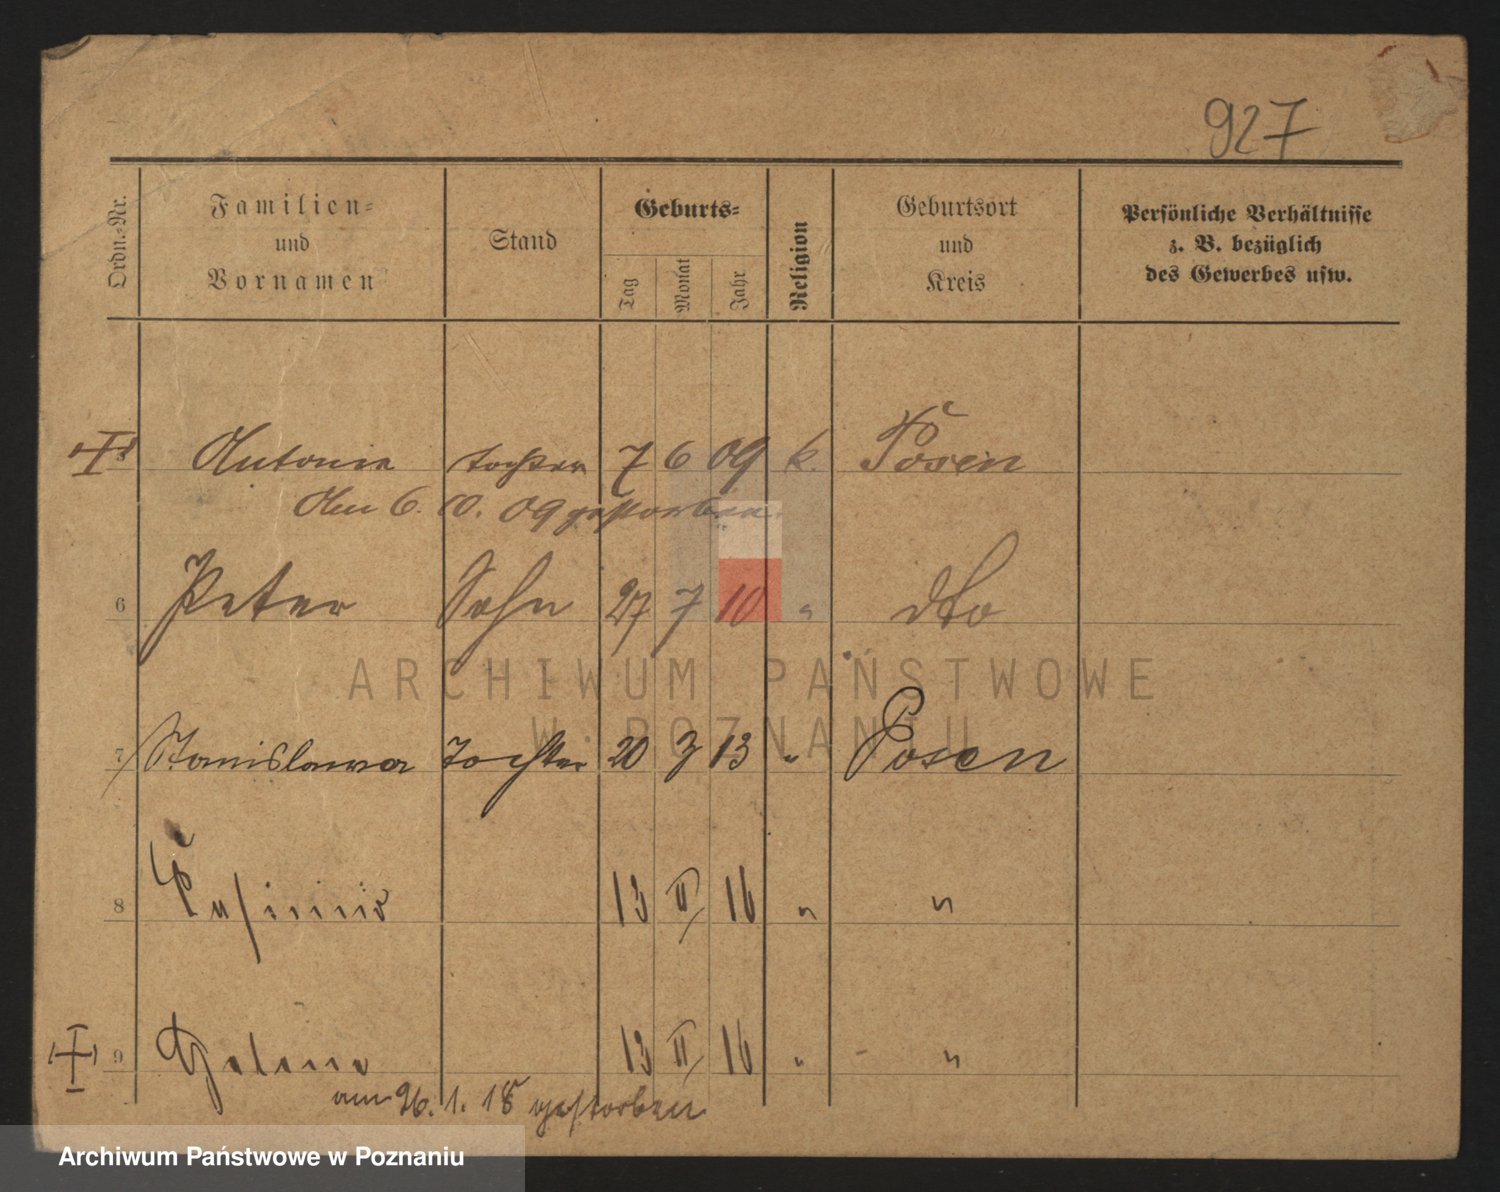 927
Ordn.-Nr.
Familien-
und
Vornamen
Stand
Geburts-
Tag
Monat
Jahr
Religion
Geburtsort
und
Kreis
Persönliche Verhältnisse
z. B. bezüglich
des Gewerbes usw.
5 Antonie Tochter 7 6 09 k. Posen
Am 6. 10. 09 gestorben.
6 Peter Sohn 27 7 10 " dto
ARCHIWUM PAŃSTWOWE
W POZNANIU
7 Stanislawa Tochter 20 3 13 " Posen
8 Casimir 13 II 16 " "
9 Helena 13 II 16 " "
am 26. 1. 18 gestorben
Archiwum Państwowe w Poznaniu